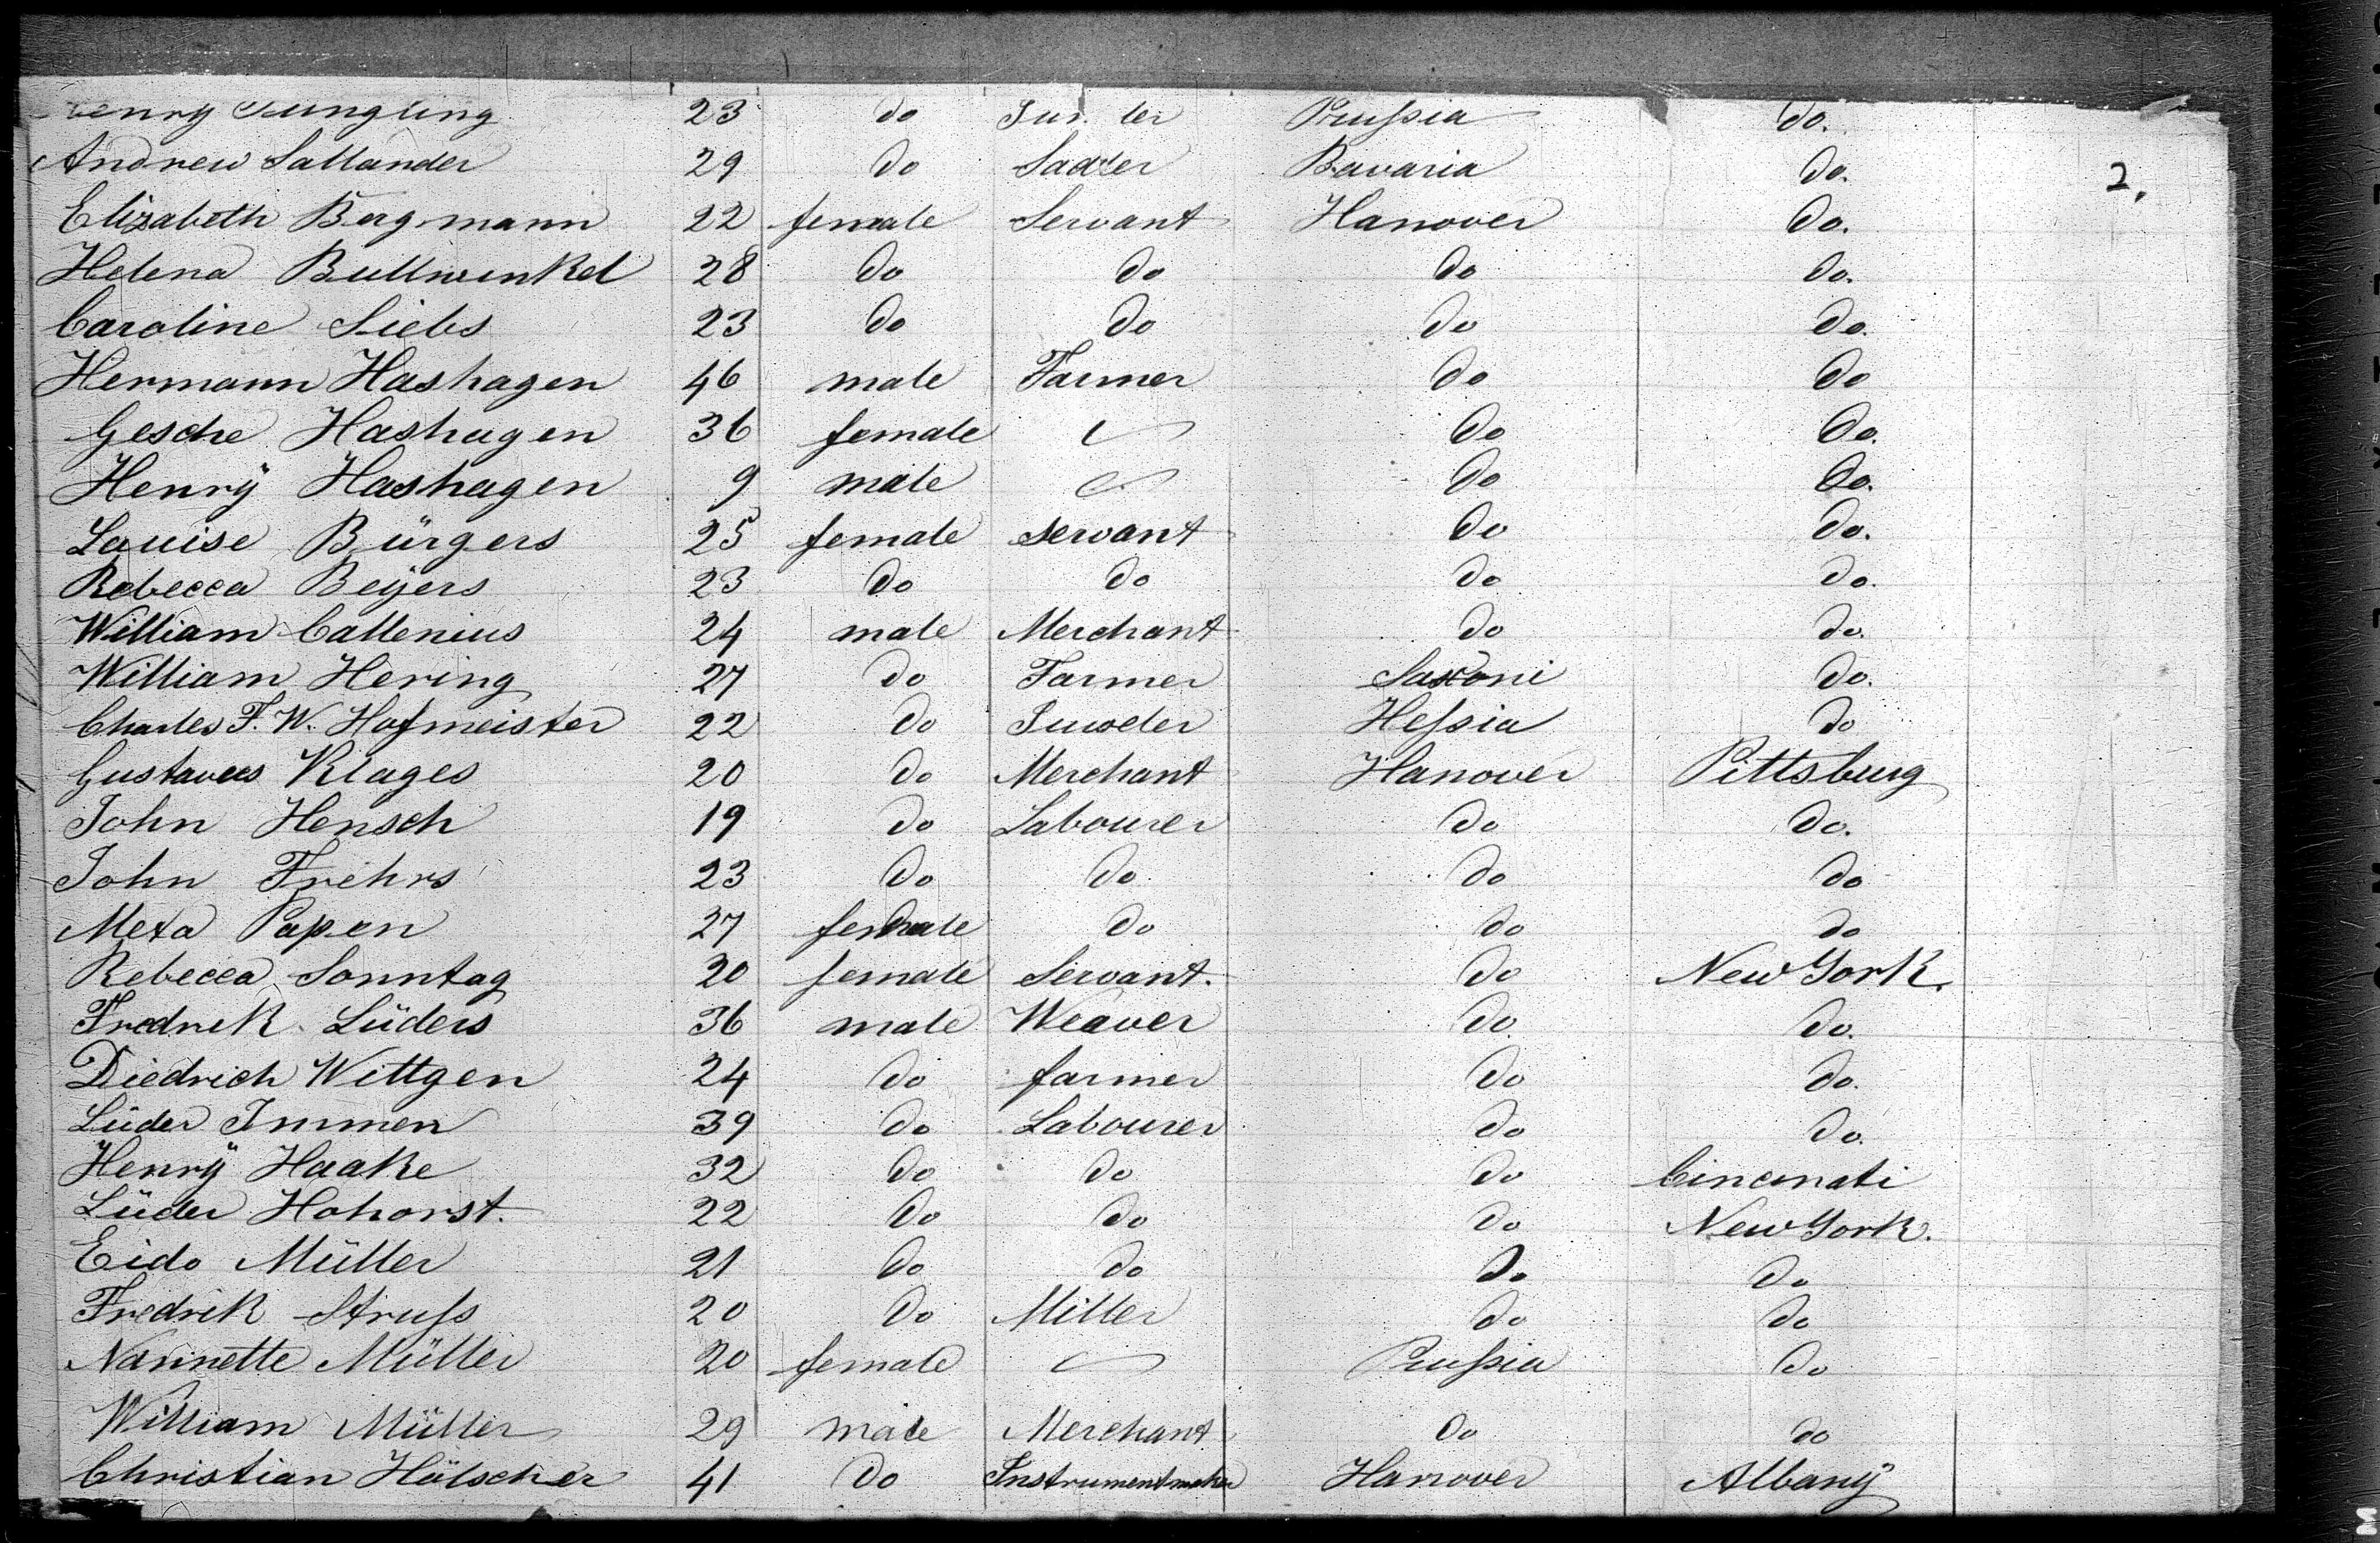 Henry Jüngling 23 do Juweler Prussia do.
Andrew Sallander 29 do Sadler Bavaria do.
2.
Elizabeth Bergmann 22 female Servant Hanover do.
Helena Bullwinkel 28 do do do do.
Caroline Siebs 23 do do do do.
Hermann Hashagen 46 male Farmer do do
Gesche Hashagen 36 female do do.
Henrÿ Hashagen 9 male do do.
Louise Bürgers 25 female servant do do.
Rebecca Beÿers 23 do do do do.
William Callenius 24 male Merchant do do.
William Hering 27 do Farmer Saxoni do.
Charles F. W. Hofmeister 22 do Juweler Hessia do
Gustavus Klages 20 do Merchant Hanover Pittsburg
John Hensch 19 do Labourer do do.
John Frehrs 23 do do do do
Meta Papen 27 female do do do
Rebecca Sonntag 20 female Servant. do New York.
Fredrik Lüders 36 male Weaver do do.
Diedrich Wittgen 24 do farmer do do.
Lüder Immen 39 do Labourer do do.
Henrÿ Haake 32 do do do Cincinati
Lüder Hohorst. 22 do do do New York.
Eido Müller 21 do do do do
Fredrik Struss 20 do Miller do do
Nannette Müller 20 female Prussia do
William Müller 29 male Merchant do do
Christian Hölscher 41 do Instrumentmaker Hanover Albanÿ